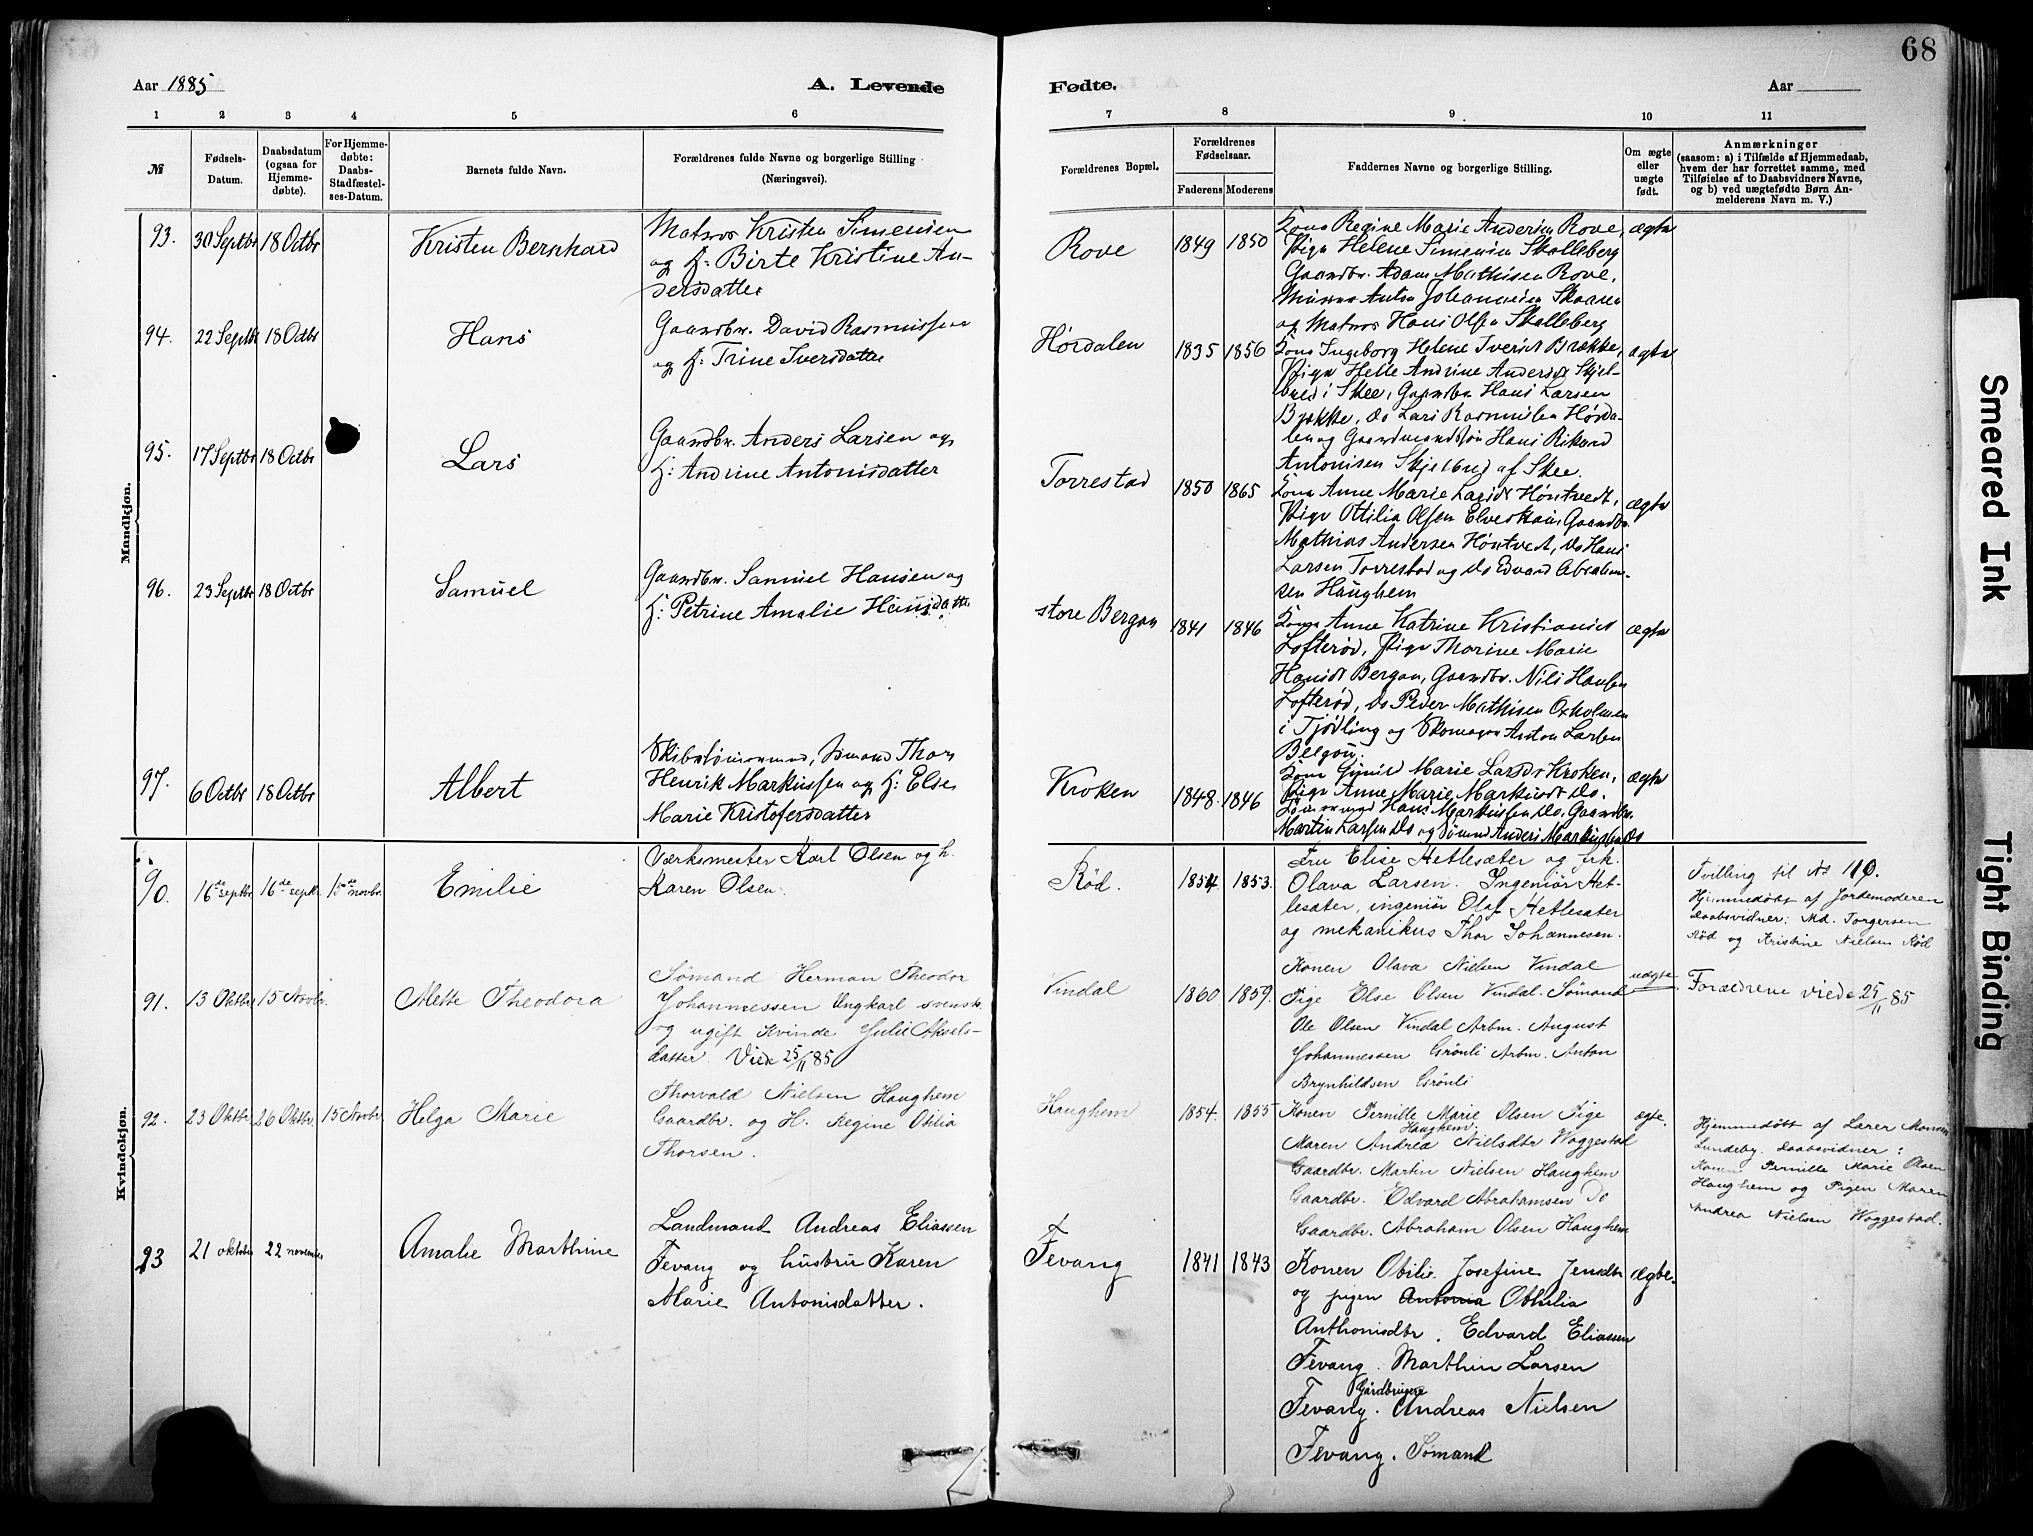 68
Aar 1885
A. Levende
Fødte.
Aar
1 2 3 4 5 6 7 8 9 10 11
№
Fødsels-
Datum.
Daabsdatum
(ogsaa for
Hjemme-
døbte).
For Hjemme-
døbte:
Daabs-
Stadfæstel-
ses-Datum.
Barnets fulde Navn.
Forældrenes fulde Navne og borgerlige Stilling
(Næringsvei).
Forældrenes Bopæl.
Forældrenes
Fødselsaar.
Faderens Moderens
Faddernes Navne og borgerlige Stilling.
Om ægte
eller
uægte
født.
Anmærkninger
(saasom: a) i Tilfælde af Hjemmedaab,
hvem der har forrettet samme, med
Tilføielse af to Daabsvidners Navne,
og b) ved uægtefødte Børn An-
melderens Navn m. V.)
Mandkjøn.
93. 30 Septbr 18 Octbr
Kristen Bernhard
Matros Kristen Simensen
og H: Birte Kristine An-
dersdatter
Rove
1849 1850
Kona Regine Marie Andersen Rove,
Pige Helene Simensen Skalleberg
Gaardbr. Adam Mathisen Rove,
Anton Johannesen Skaaren
og Matros Hans Olsen Skalleberg
ægte
94. 22 Septbr 18 Octbr
Hans
Gaardbr. David Rasmussen
og H: Trine Iversdatter
Hørdalen
1835 1856
Kona Ingeborg Helene Iversdt Brække,
Pige Helle Andrine Andersdt Skjel-
bred i Skee, Gaardbr Hans Larsen
Brække, do Lars Rasmussen Hørda-
len og Gaardmandssøn Hans Rikard
Antonisen Skjelbred af Skee
ægte
95. 17 Septbr 18 Octbr
Lars
Gaardbr. Anders Larsen og
H: Andrine Antonisdatter
Torrestad
1850 1865
Kona Anne Marie Larsdt Høntvedt,
Pige Ottilia Olsen Elverhøi, Gaardbr.
Mathias Andersen Høntvedt, do Hans
Larsen Torrestad og do Edvard Abraham-
sen Haughem
ægte
96. 23 Septbr 18 Octbr
Samuel
Gaardbr. Samuel Hansen og
H: Petrine Amalie Hansdatter
store Bergan
1841 1846
Kona Anne Katrine Kristiansdt
Lofterød, Pige Thorine Marie
Hansdt Bergan, Gaardbr. Nils Hansen
Lofterød, do Peder Mathisen Oxholmen
i Tjødling og Skomager Anton Larsen
Bergan.
ægte
97. 6 Octbr 18 Octbr
Albert
Skibstømmermand, Sømand Thor
Henrik Markussen og H: Else
Marie Kristofersdatter
Kroken
1848. 1846
Kona Marie Larsdt Kroken,
Pige Anne Marie Markusdt do.
Hans Markussen do. Gaardbr.
Martin Larsen do og Sømand Anders Markussen do
ægte
Kvindekjøn.
90. 16de septbr 16de septbr 15de novbr.
Emilie
Værksmester Karl Olsen og h.
Karen Olsen
Rød.
1854 1853.
Fru Elise Hetlesæter og frk.
Olava Larsen. Ingeniør Het-
lesæter, ingeniør Olaf Hetlesæter
og mekanikus Thor Johannesen.
Tvilling til No 110.
Hjemmedøbt af Jordemoderen
Daabsvidner: Md. Torgersen
Rød og Kristine Nielsen Rød
91. 13 Oktbr 15 Novbr.
Mette Theodora
Sømand Herman Theodor
Johannessen Ungkarl svensk
og ugift Kvinde Julie Aksels-
datter. Viede 25/11 85
Vindal
1860 1859.
Konen Olava Nielsen Vindal
Pige Else Olsen Vindal. Sømand
Ole Olsen Vindal Arbm. August
Johannessen Grønli Arbm. Anton
Brynhildsen Grønli
uægte
Forældrene viede 25/11 85
92. 23 Oktbr 26 Oktbr. 15 Novbr.
Helga Marie
Thorvald Nielsen Haughem
Gaardbr. og H. Regine Otilia
Thorsen.
Haughem
1854. 1855
Konen Pernille Marie Olsen Pige
Haughem.
Maren Andrea Nielsdtr Woggestad
Gaardbr. Martin Nielsen Haughem
Gaardbr. Edvard Abrahamsen Do
Gaardbr. Abraham Olsen Haughem
ægte.
Hjemmedøbt af Lærer
Lundeby. Daabsvidner:
Konen Pernille Marie Olsen
Haughem og Pigen Maren
Andrea Nielsen Woggestad.
93 21 oktober 22 november
Amalie Marthine
Landmand Andreas Eliassen
Fevang og hustru Karen
Marie Antonisdatter.
Fevang
1841 1843
Konen Otilie Josefine Jensdtr
og pigen Antonia Othilia
Anthonisdtr. Edvard Eliassen
Fevang. Marthin Larsen
Gårdbrugere
Fevang. Andreas Nielsen
Fevang. Sømand
ægte.
Smeared Ink
Tight Binding